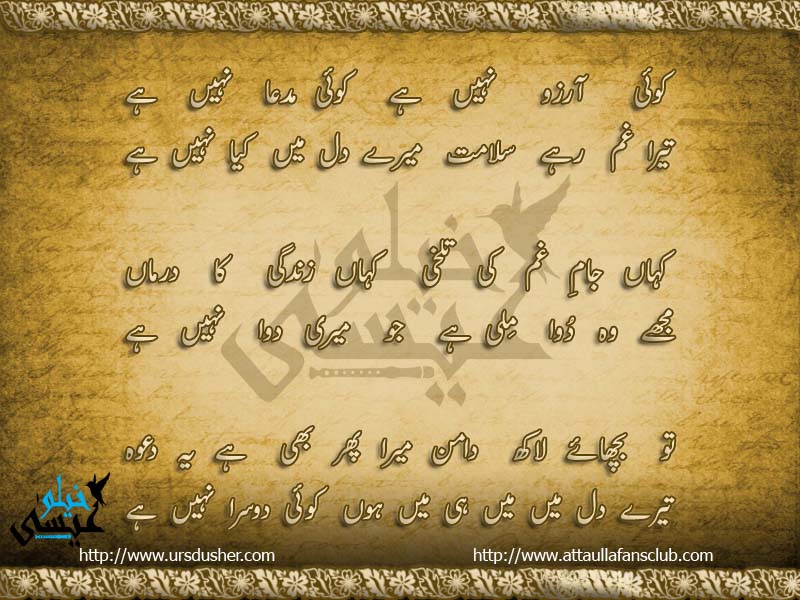 کوئی آرزو نہیں ہے کوئی مدعا نہیں ہے
تیرا غم رہے سلامت میرے دل میں کیا نہیں ہے
کہاں جامِ غم کی تلخی کہاں زندگی کا درماں
مجھے وہ دُوا مِلی ہے جو میری دوا نہیں ہے
تو بچھائے لاکھ دامن میرا پھر بھی ہے یہ دعوہ
تیرے دل میں میں ہی میں ہوں کوئی دوسرا نہیں ہے
نیلو عیسیٰ
نیلو عیسیٰ
http://www.ursdusher.com
http://www.attaullafansclub.com